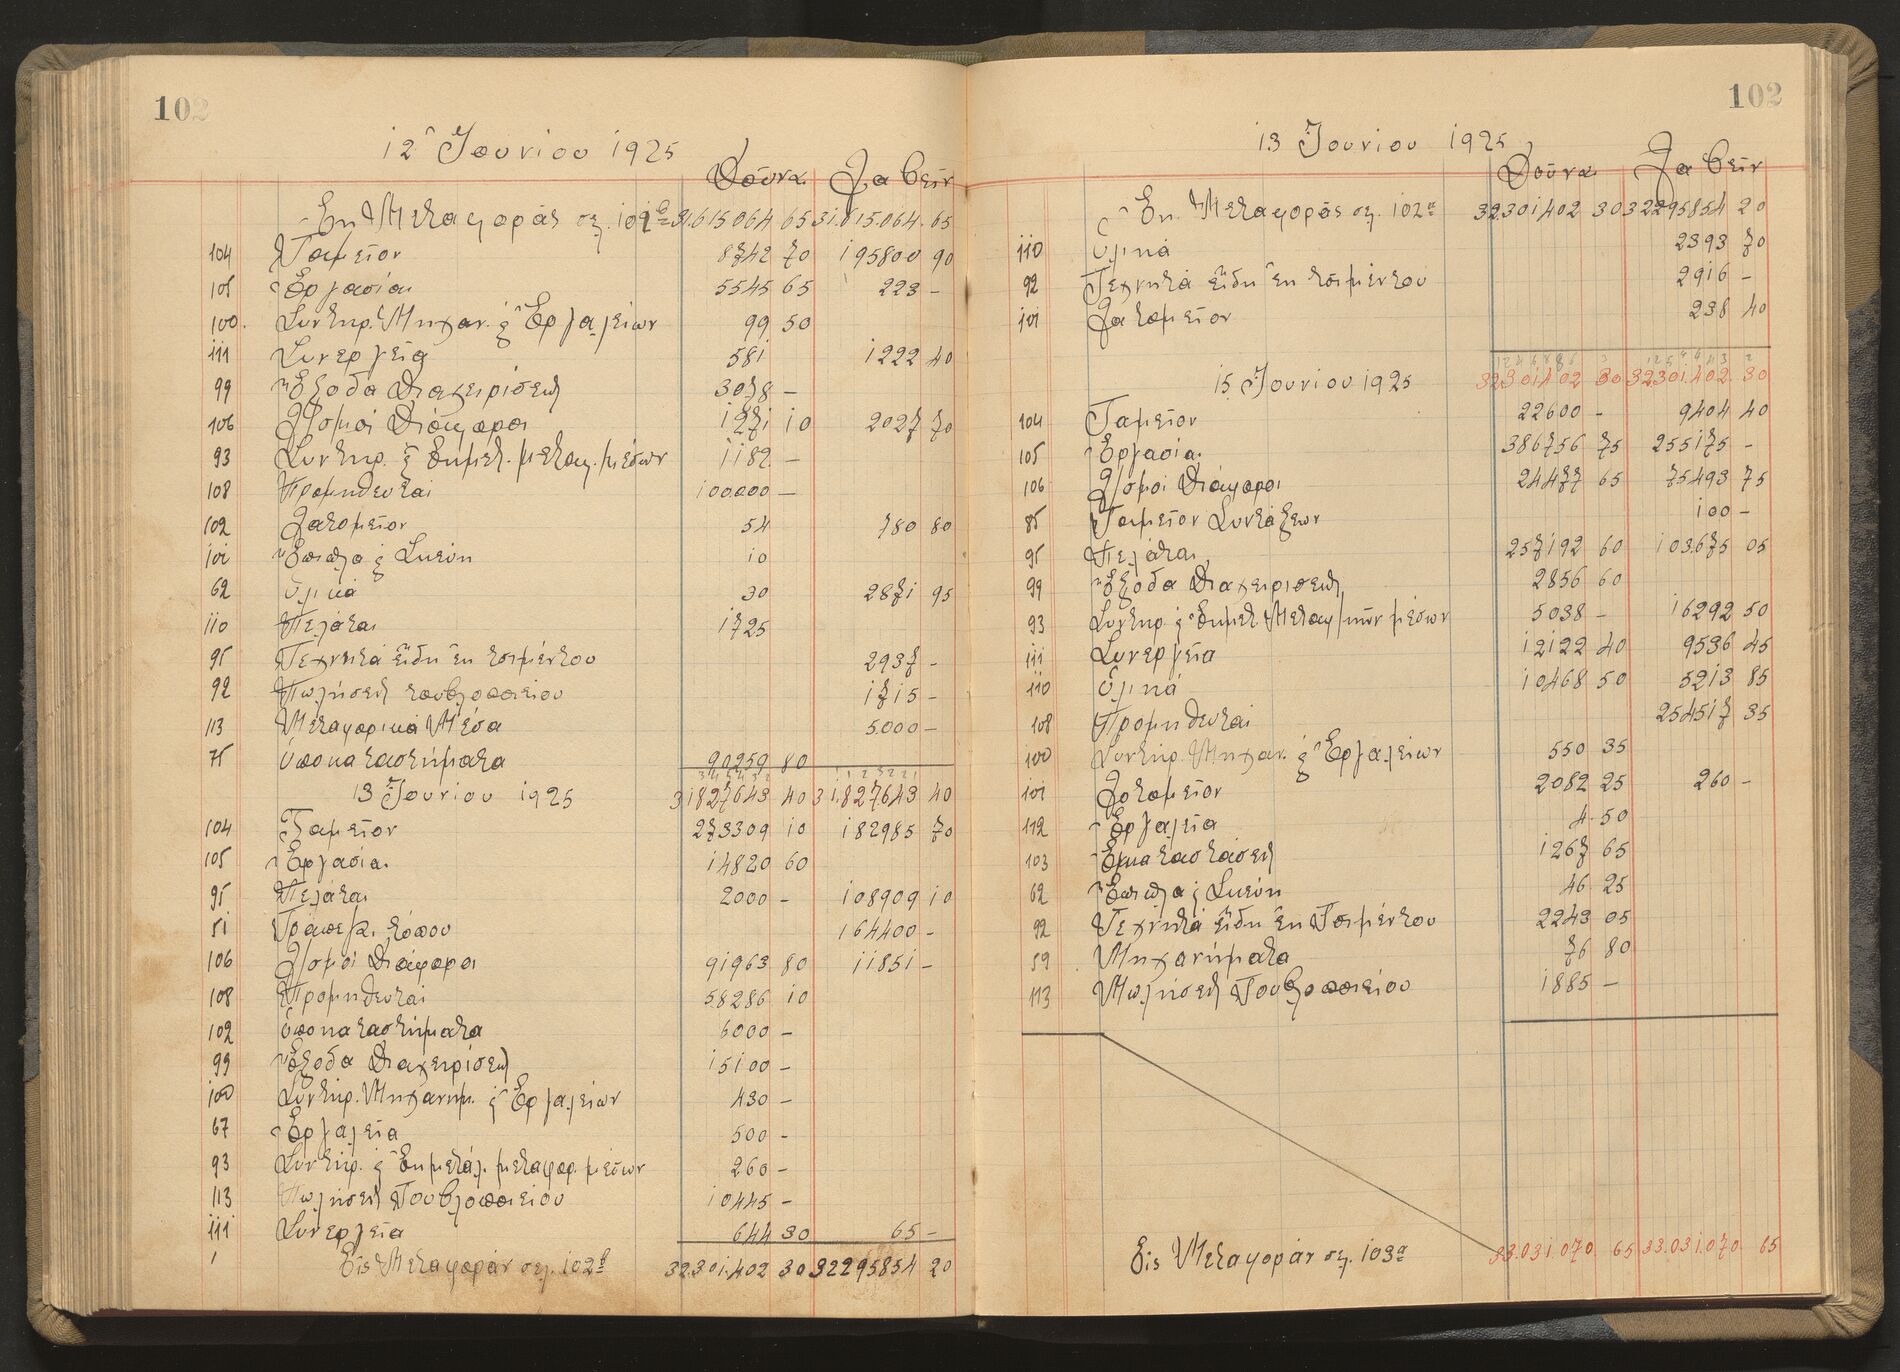 102
12 Ἰουνίου 1925
Δοῦναι Λαβεῖν
Ἐκ Μεταφορᾶς σελ. 101β 31.615.064 65 31.615.064.65
104 Ταμεῖον 8742 70 195800 90
105 Ἐργασίαι 5545 65 223 –
100. Συντηρ. Μηχαν. & Ἐργαλείων 99 50
111 Συνεργεῖα 581 1222 40
99 Ἔξοδα Διαχειρίσεως 3078 –
106 Λ/σμοί Διάφοροι 1271 10 2027 70
93 Συντηρ. & Ἐκμετ. μεταφ. μέσων 1182 –
108 Προμηθευταί 100.000 –
102 Λατομεῖον 54 780 80
101 Ἔπιπλα & Σκεύη 10
62 Ὑλικά 30 2871 95
110 Πελάται 1725
95 Τεχνητά εἴδη ἐκ τσιμέντου 2937 –
92 Πωλήσεις τουβλοποιείου 1715 –
113 Μεταφορικά Μέσα 5.000 –
75 Ὑποκαταστήματα 90259 80
13 Ἰουνίου 1925 31827643 40 31.827643 40
104 Ταμεῖον 273309 10 182985 70
105 Ἐργασίαι 14820 60
95 Πελάται 2000 – 108909 10
51 Τράπεζαι τόπου 164400 –
106 Λ/σμοί Διάφοροι 91963 80 11851 –
108 Προμηθευταί 58286 10
102 Ὑποκαταστήματα 6000 –
99 Ἔξοδα Διαχειρίσεως 15100 –
100 Συντηρ. Μηχανημ. & Ἐργαλείων 430 –
67 Ἐργαλεῖα 500 –
93 Συντηρ. & Ἐκμετάλ. μεταφορ. μέσων 260 –
113 Πωλήσεις Τουβλοποιείου 10445 –
111 Συνεργεῖα 644 30 65 –
Εἰς Μεταφοράν σελ. 102β 32.301.402 30 32295854 20
102
13 Ἰουνίου 1925
Δοῦναι Λαβεῖν
Ἐκ Μεταφορᾶς σελ. 102α 32301402 30 32295854 20
110 Ὑλικά 2393 70
92 Τεχνητά εἴδη ἐκ τσιμέντου 2916 –
101 Λατομεῖον 238 40
15 Ἰουνίου 1925 32301402 30 32301.402 30
104 Ταμεῖον 22600 – 9404 40
105 Ἐργασίαι 386756 75 255175 –
106 Λ/σμοί Διάφοροι 24477 65 75493 75
85 Ταμεῖον Συντάξεων 100 –
95 Πελάται 257192 60 103675 05
99 Ἔξοδα Διαχειρίσεως 2856 60
93 Συντηρ. & Ἐκμετ. Μεταφ/κῶν μέσων 5038 – 16292 50
111 Συνεργεῖα 12122 40 9536 45
110 Ὑλικά 10468 50 5213 85
108 Προμηθευταί 254517 35
100 Συντηρ. Μηχαν. & Ἐργαλείων 550 35
101 Λατομεῖον 2082 25 260 –
112 Ἐργαλεῖα 4 50
103 Ἐγκαταστάσεις 1267 65
62 Ἔπιπλα & Σκεύη 46 25
92 Τεχνητά εἴδη ἐκ Τσιμέντου 2243 05
59 Μηχανήματα 76 80
113 Πωλήσεις Τουβλοποιείου 1885 –
Εἰς Μεταφοράν σελ. 103α 33.031.070 65 33.031.070 65